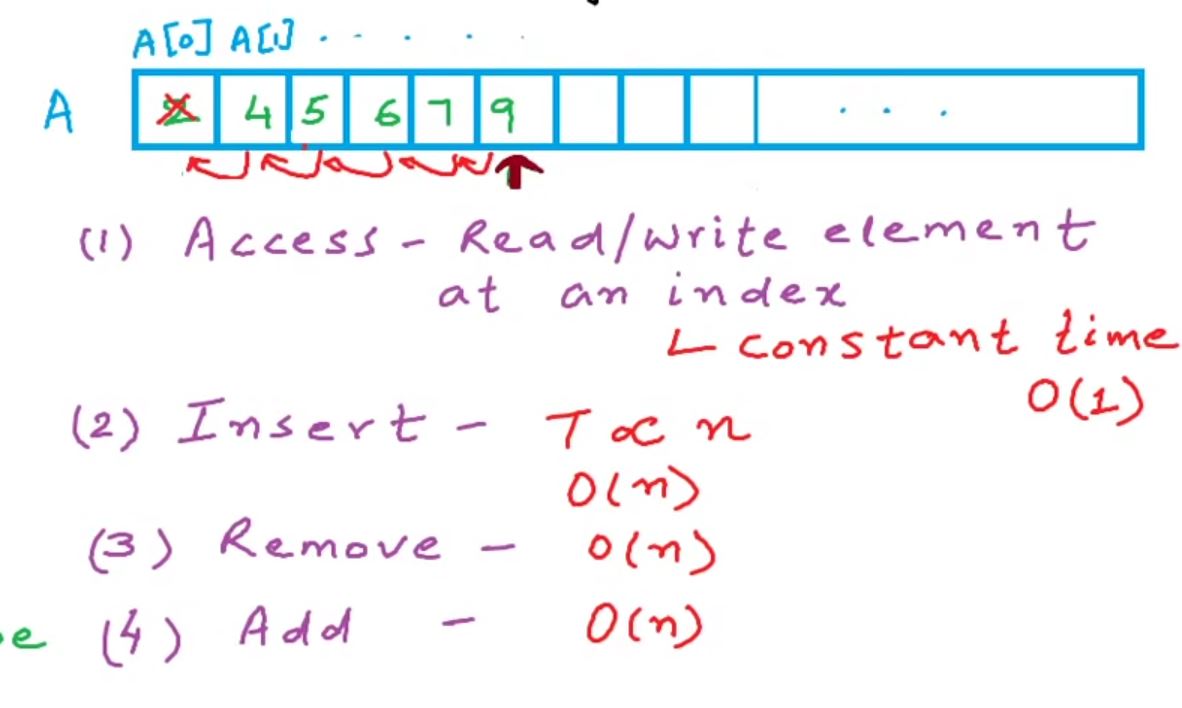 A[0] A[1] . . . . .
A 2 4 5 6 7 9 . . .
(1) Access - Read/Write element
at an index
constant time
O(1)
(2) Insert - T ∝ n
O(n)
(3) Remove - O(n)
(4) Add - O(n)